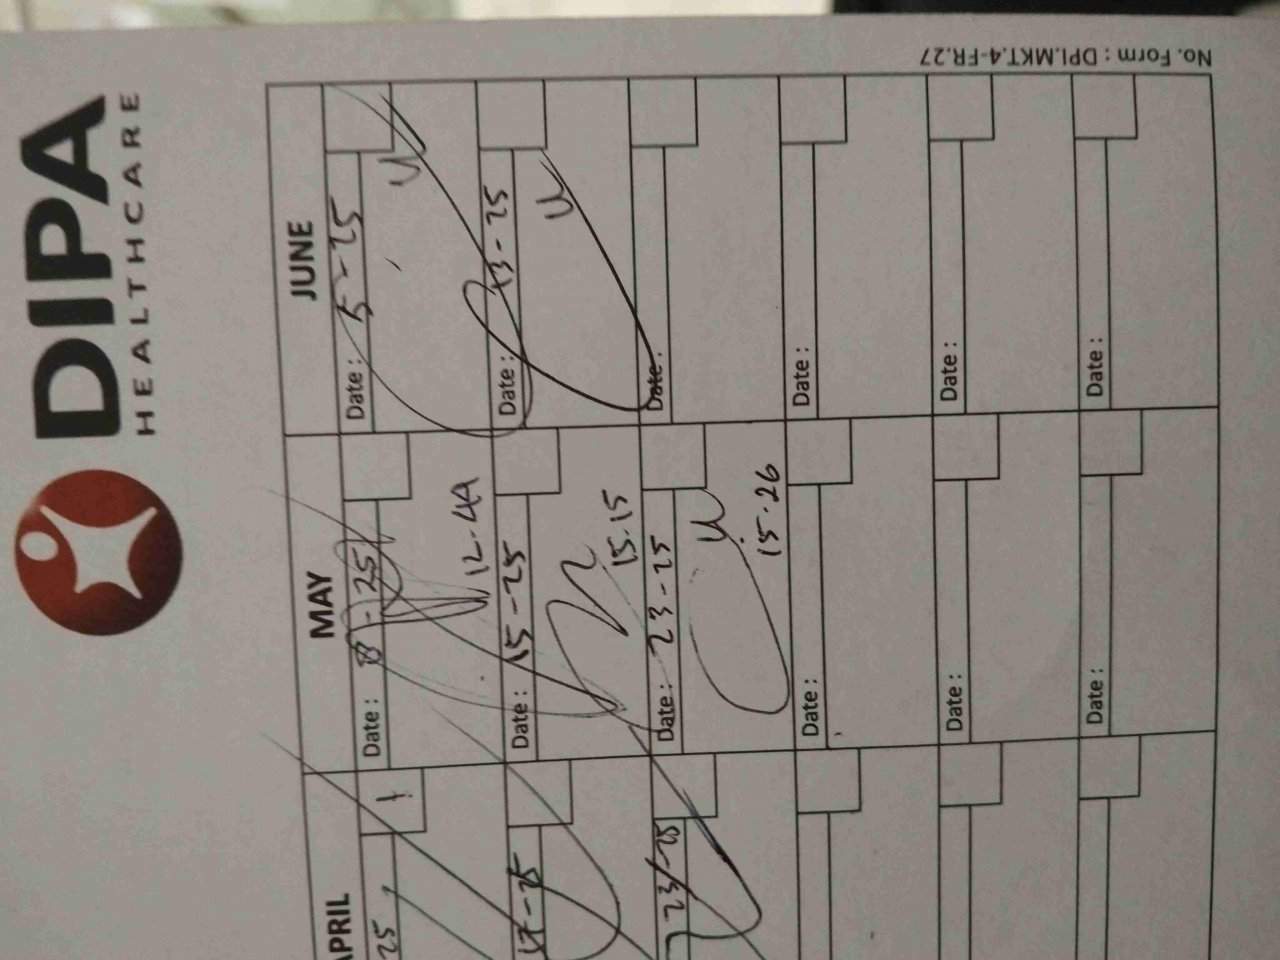 DIPA
HEALTHCARE
No. Form : DPI.MKT.4-FR.27
APRIL
MAY
JUNE
25
1
Date : 8-25
12.49
Date : 5-25
17-25
Date : 15-25
15.15
Date : 13-25
23/25
Date : 23-25
15.26
Date :
Date :
Date :
Date :
Date :
Date :
Date :